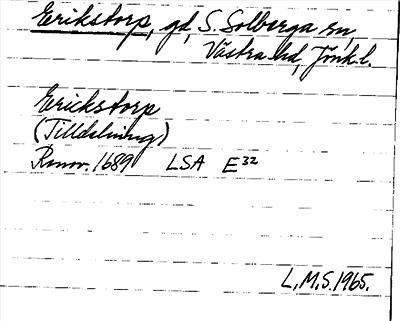 Erikstorp, gd, S. Solberga sn,
Västra hd, Jönk.l.
Erickstorp
(Tilldelning)
Renov. 1689 LSA E32
L.M.S. 1965.